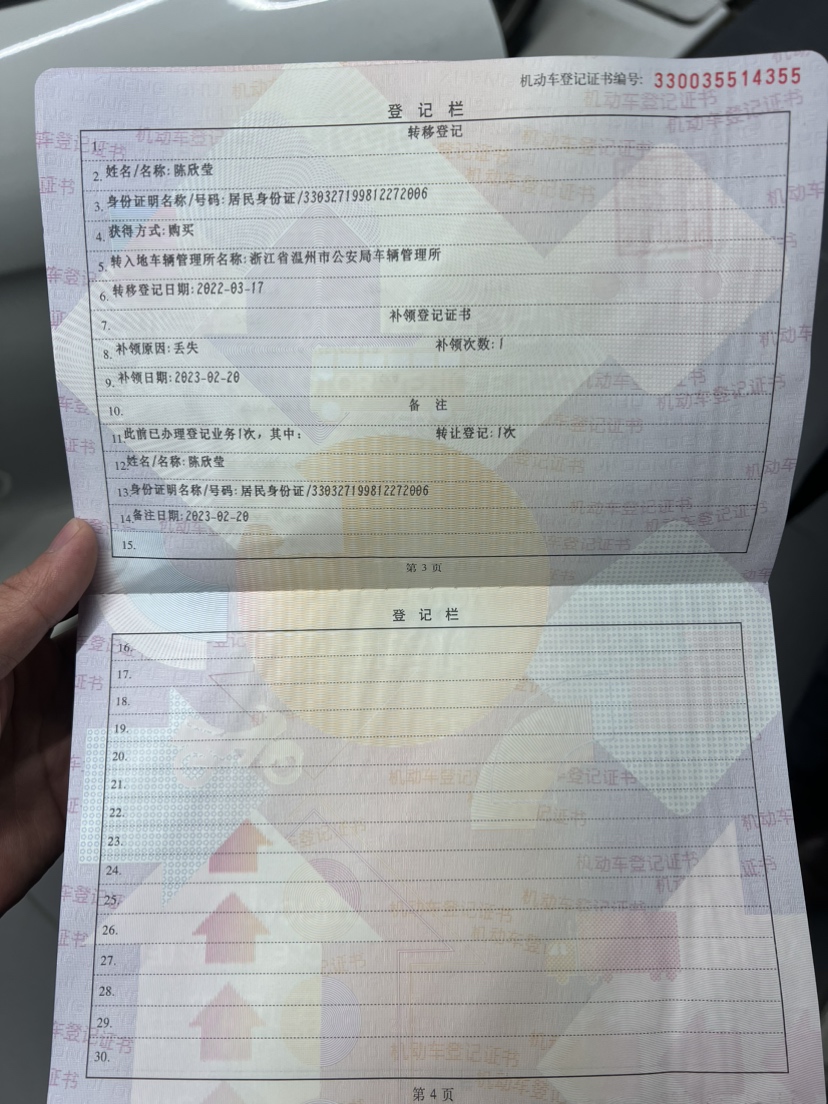 机动车登记证书编号: 330035514355
登记栏
1. 转移登记
2. 姓名/名称:陈欣莹
3. 身份证明名称/号码:居民身份证/330327199812272006
4. 获得方式:购买
5. 转入地车辆管理所名称:浙江省温州市公安局车辆管理所
6. 转移登记日期:2022-03-17
7. 补领登记证书
8. 补领原因:丢失 补领次数:1
9. 补领日期:2023-02-20
10. 备 注
11. 此前已办理登记业务1次，其中: 转让登记:1次
12. 姓名/名称:陈欣莹
13. 身份证明名称/号码:居民身份证/330327199812272006
14. 备注日期:2023-02-20
15.
第 3 页
登记栏
16.
17.
18.
19.
20.
21.
22.
23.
24.
25.
26.
27.
28.
29.
30.
第 4 页